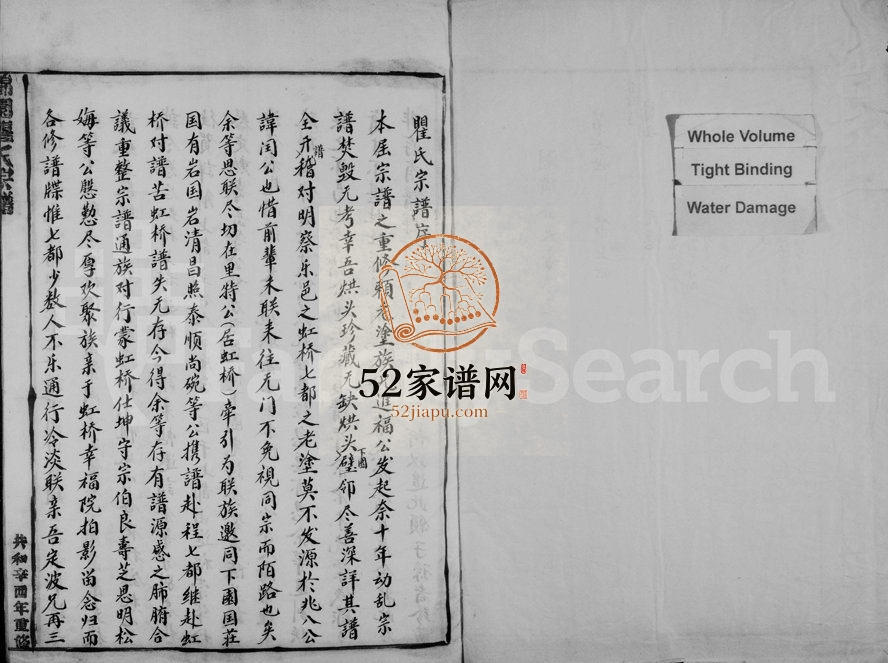 瞿氏宗譜序
本屈宗譜之重修賴老塗族進福公发起奈十年动乱宗
譜焚毁无考幸吾烘头珍藏无缺烘头下園壁邻尽善深詳其譜
全开譜稽对明察乐邑之虹桥七都之老塗莫不发源於兆八公
諱闰公也惜前輩未联未往无门不免視同宗而陌路也矣
余等思联尽切在里特公(居虹桥)牵引为联族邀同下園国荘
国有岩国岩清昌照泰順尚碗等公携譜赴程七都继赴虹
桥对譜苦虹桥譜失无存今得余等存有譜源感之肺腑合
議重整宗譜通族对行蒙虹桥仕坤守宗伯良壽芝思明松
海等公懇懃尽厚欢聚族亲于虹桥幸福院拍影留念归而
各修譜牒惟七都少数人不乐通行冷淡联亲吾定波兄再三
瞿氏宗譜
共和辛酉年重修
Whole Volume
Tight Binding
Water Damage
FamilySearch
52家谱网
52jiapu.com